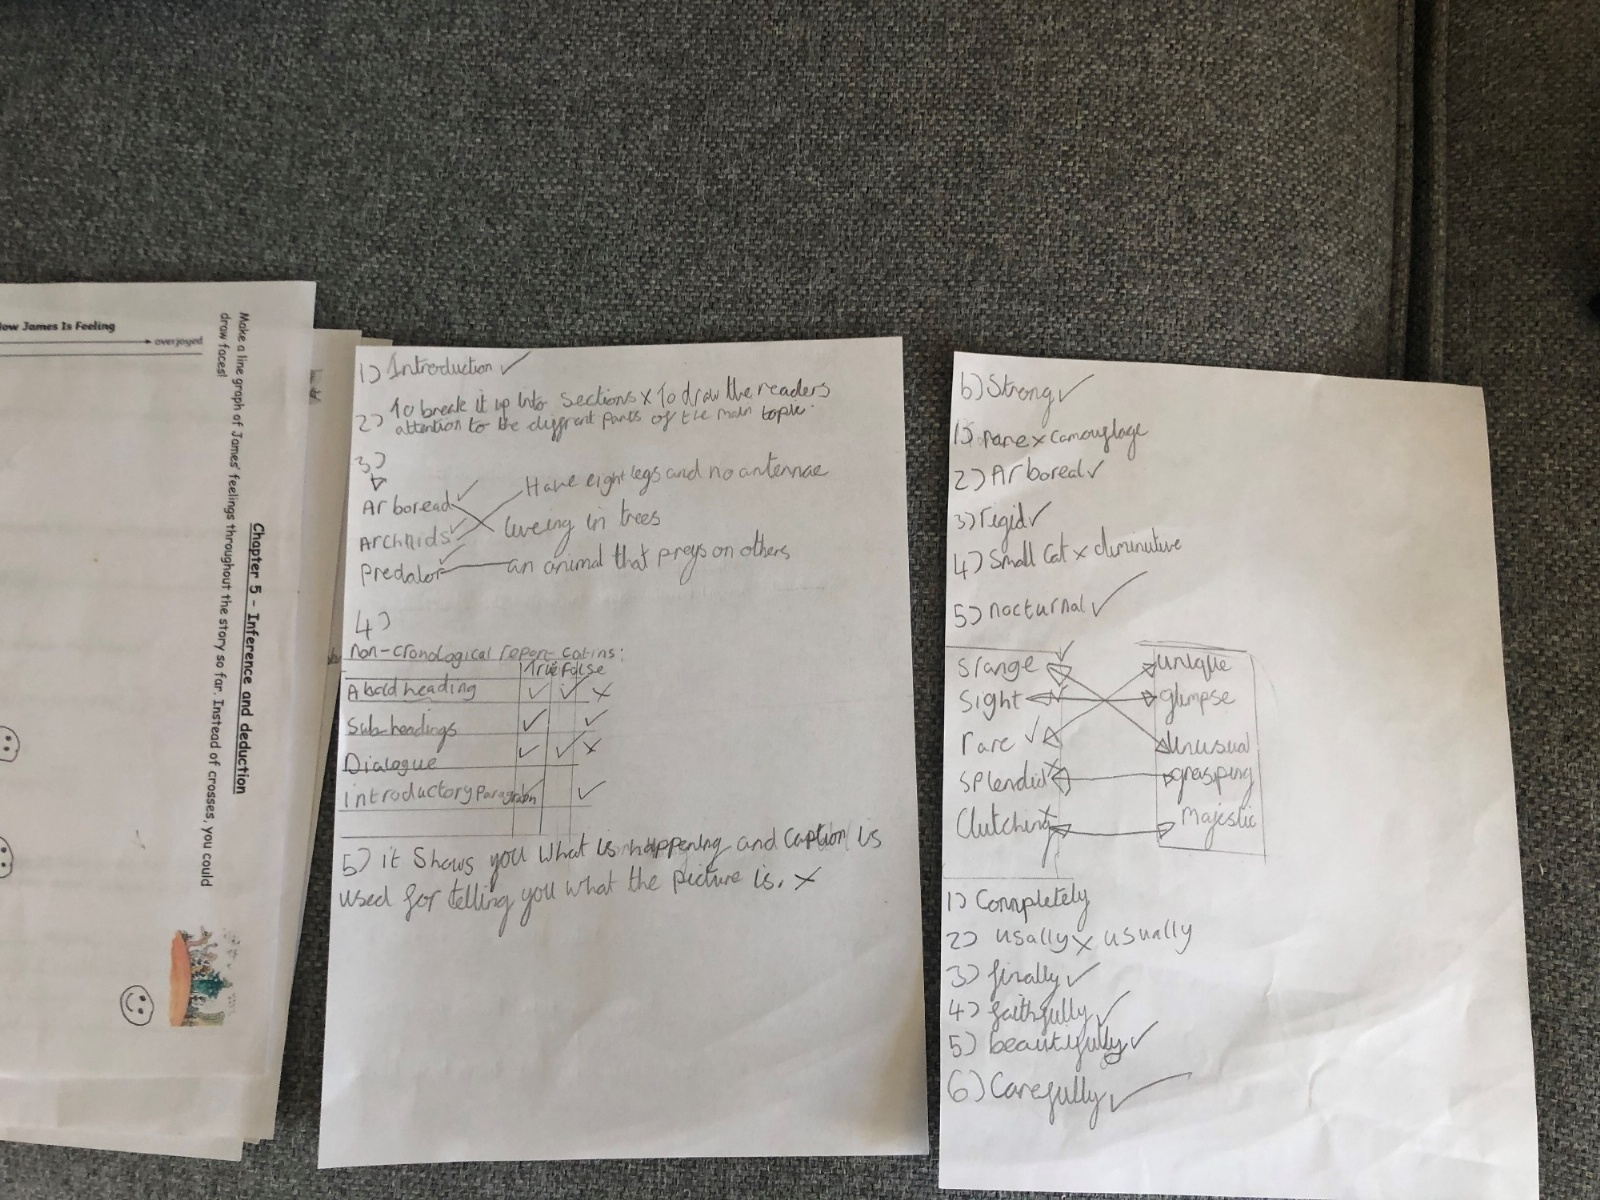 How James Is Feeling
overjoyed
Make a line graph of James' feelings throughout the story so far. Instead of crosses, you could
draw faces!
Chapter 5 - Inference and deduction
1) Introduction ✓
2) To break it up into sections x To draw the readers
attention to the diffrent parts of the main topic.
3)
Arboread ✓ Have eight legs and no antennae
Archnids ✓ liveing in trees
predator ✓ an animal that preys on others
4)
non-cronological report cotins:
True False
A bold heading ✓ ✓ x
Sub-headings ✓ ✓
Dialogue ✓ ✓ x
introductory paragraph ✓ ✓
5) it shows you what is happening and caption is
used for telling you what the picture is. x
6) Strong ✓
1) rare x camouflage
2) Arboreal ✓
3) regid ✓
4) Small cat x diminutive
5) nocturnal ✓
Srange ✓ unique
Sight ✓ glimpse
rare ✓ unusual
Splendid x grasping
Clutching x majestic
1) Completely
2) usally x usually
3) finally ✓
4) faithfully ✓
5) beautifully ✓
6) Carefully ✓